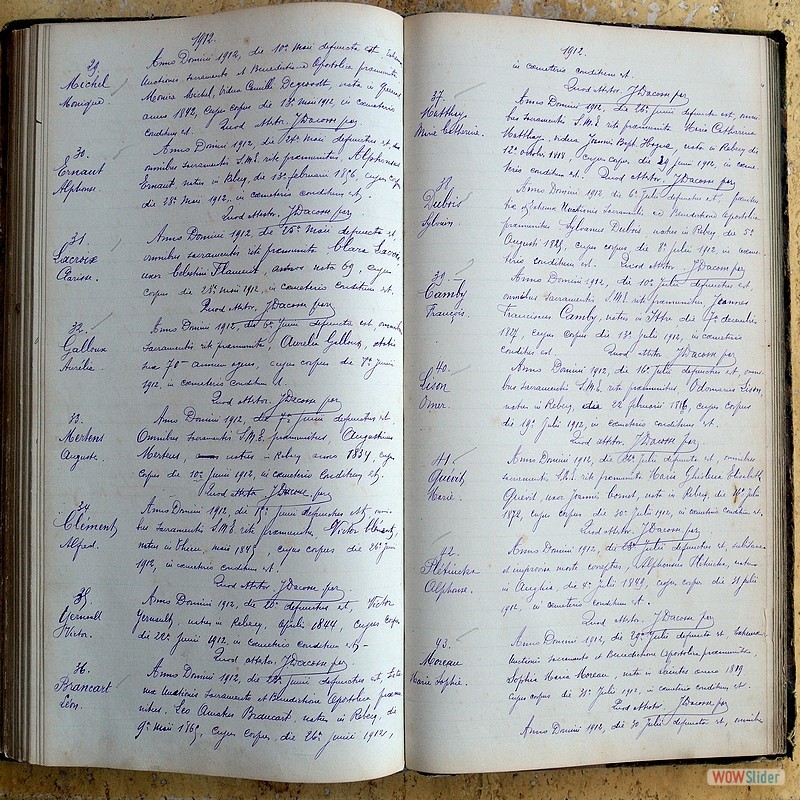 1912.
29. Michel Monique.
Anno Domini 1912, die 10a Maii defuncta est, Extremae
Unctionis Sacramento et Benedictione Apostolica praemunita
Monica Michel, vidua Camilli Degrootk, nata in
anno 1842, cujus corpus die 13a Maii 1912, in cemeterio
conditum est. Quod Attstor. JDacosse par.
30. Ernaut Alphonse.
Anno Domini 1912, die 24a Maii defunctus est,
omnibus Sacramentis S.M.E. rite praemunitus, Alphonsus
Ernaut, natus in Rebecq, die 13a februarii 1856, cujus corpus
die 28a Maii 1912, in cemeterio conditum est.
Quod Attstor. JDacosse par.
31. Lacroix Clarisse.
Anno Domini 1912, die 25a Maii defuncta est,
omnibus sacramentis rite praemunita Clara Lacroix,
uxor Celestini Flament, nata 69, cujus
corpus die 28a Maii 1912, in cemeterio conditum est.
Quod Attstor. JDacosse par.
32. Galloux Aurélie.
Anno Domini 1912, die 6a Junii defuncta est, omnibus
Sacramentis rite praemunita, Aurelia Galloux, aetatis
suae 70um annum agens, cujus corpus die 7a Junii
1912, in cemeterio conditum est.
Quod Attstor. JDacosse par.
33. Mertens Auguste.
Anno Domini 1912, die 7a Junii defunctus est.
Omnibus Sacramentis S.M.E. praemunitus, Augustinus
Mertens, natus in Rebecq anno 1834, cujus
corpus die 10a Junii 1912, in cemeterio conditum est.
Quod Attstor. JDacosse par.
34 Clément Alfred.
Anno Domini 1912, die Junii defunctus est, omni-
bus Sacramentis S.M.E. rite praemunitus, Victor Clément,
natus in Thieu, maii 1845, cujus corpus die 26a Junii
1912, in cemeterio conditum est.
Quod Attstor. JDacosse par.
35. Gernault Victor.
Anno Domini 1912, die 20a defunctus est, Victor
Gernault, natus in Rebecq, aprilis 1844, cujus corpus
die 22a Junii 1912, in cemeterio conditum est
Quod attstor. JDacosse par.
36. Brancart Léon.
Anno Domini 1912, die Junii defunctus est, Extre-
mae Unctionis Sacramento et Benedictione Apostolica praemu-
nitus, Leo Amatus Brancart, natus in Rebecq, die
9a Maii 1865, cujus corpus, die 26a Junii 1912,
1912.
in cemeterio conditum est.
Quod Attstor. JDacosse par
37. Matthay Marie Catherine.
Anno Domini 1912, die 26a Junii defuncta est, omni-
bus Sacramentis S.M.E. rite praemunita Maria Catharina
Matthay, vidua Joannis Bapt. nata in Rebecq die
12a octobr. 1818, cujus corpus die 29 Junii 1912, in ceme-
terio conditum est. Quod Attstor. JDacosse par
38 Dubois Sylvain.
Anno Domini 1912 die 6a Julii defunctus est,
Extremae Unctionis Sacramento et Benedictione Apostolica
praemunitus Sylvanus Dubois, natus in Rebecq die 5a
Augusti 1825, cujus corpus die 8a Julii 1912, in ceme-
terio conditum est. Quod attstor. JDacosse par
39. Camby François.
Anno Domini 1912, die 10a Julii defunctus est,
omnibus Sacramentis S.M.E. rite praemunitus Joannes
Franciscus Camby, natus in Ittre die 7a decembris
1827, cujus corpus die 13a Julii 1912, in cemeterio
conditum est. Quod Attstor. JDacosse par
40. Lison Omer.
Anno Domini 1912, die 16a Julii defunctus est, omni-
bus Sacramentis S.M.E. rite praemunitus Odomarus Lison,
natus in Rebecq, die 22 februarii 1876, cujus corpus
die 19a Julii 1912, in cemeterio conditum est.
Quod attstor. JDacosse par
41. Quévit Marie.
Anno Domini 1912, die Julii defuncta est, omnibus
sacramentis S.M.E. rite praemunita Maria Ghislena Elisabeth
Quévit, uxor Joannis Cornet, nata in Rebecq, die Julii
1872, cujus corpus die 30a Julii 1912, in cemeterio conditum est.
Quod Attstor. JDacosse par
42. Alphonse.
Anno Domini 1912, die 28a Julii defunctus est, subitanea
et improvisa morte correptus, Alphonsus natus
in Anglia, die 4a Julii 1849, cujus corpus die 31 Julii
1912, in cemeterio conditum est.
Quod Attstor. JDacosse par
43. Moreau Marie Sophie.
Anno Domini 1912, die 29a Julii defuncta est Extremae
Unctionis Sacramento et Benedictione Apostolica praemunita
Sophia Maria Moreau, nata in Saintes anno 1829
cujus corpus die 31a Julii 1912, in cemeterio conditum est.
Quod Attstor. JDacosse par
Anno Domini 1912, die 30 Julii defuncta est, omnibus
WOWSlider